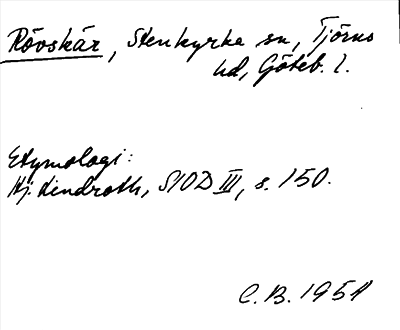 Rövskär, Stenkyrka sn, Tjörns
hd, Göteb. l.
Etymologi:
Hj. Lindroth, SIOD III, s. 150.
C.B. 1951